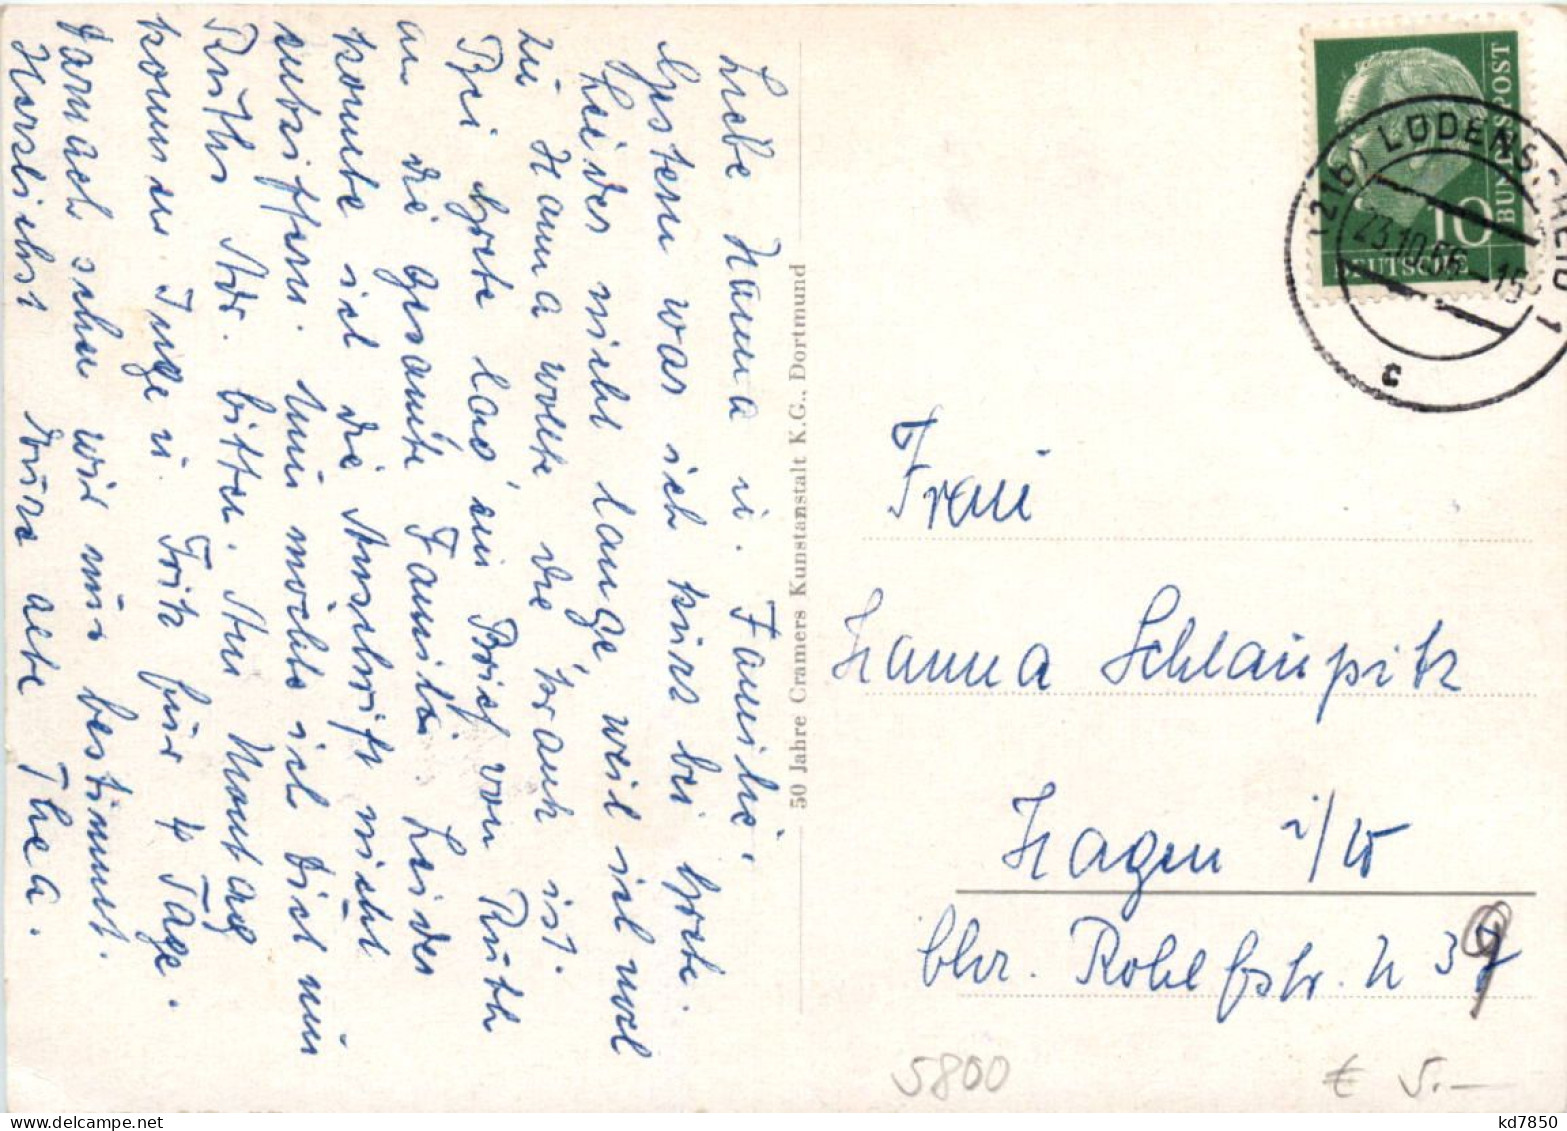 Liebe Hanna u. Familie.
Gestern war ich kurz bei Grete.
Leider nicht lange weil ich noch
zu Hanna wollte, die krank ist.
Bei Grete las' ein Brief von Ruth
an die gesamte Familie. Leider
konnte ich die Anschrift nicht
entziffern. Nun möchte ich Dich um
Ruths Adr. bitten. Am Montag
kommen Inge u. Fritz für 4 Tage.
Darnach sehen wir uns bestimmt.
Herzlichst Eure alte Thea.
50 Jahre Cramers Kunstanstalt K.G., Dortmund
DEUTSCHE BUNDESPOST
10
(21b) LÜDENSCHEID 1
23.10.56-15
c
Frau
Hanna Schlaupitz
Hagen i/W
bhr.
5800
€ 5.-
kd7850